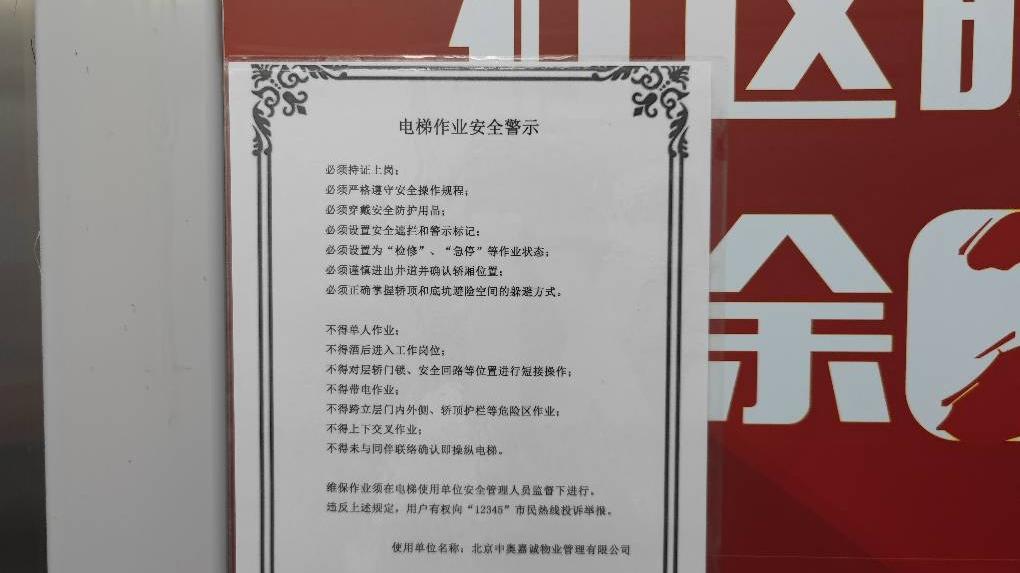 电梯作业安全警示
必须持证上岗；
必须严格遵守安全操作规程；
必须穿戴安全防护用品；
必须设置安全遮拦和警示标记；
必须设置为“检修”、“急停”等作业状态；
必须谨慎进出井道并确认轿厢位置；
必须正确掌握轿顶和底坑避险空间的躲避方式。
不得单人作业；
不得酒后进入工作岗位；
不得对层轿门锁、安全回路等位置进行短接操作；
不得带电作业；
不得跨立层门内外侧、轿顶护栏等危险区作业；
不得上下交叉作业；
不得未与同伴联络确认即操纵电梯。
维保作业须在电梯使用单位安全管理人员监督下进行。
违反上述规定，用户有权向“12345”市民热线投诉举报。
使用单位名称：北京中奥嘉诚物业管理有限公司
区
余